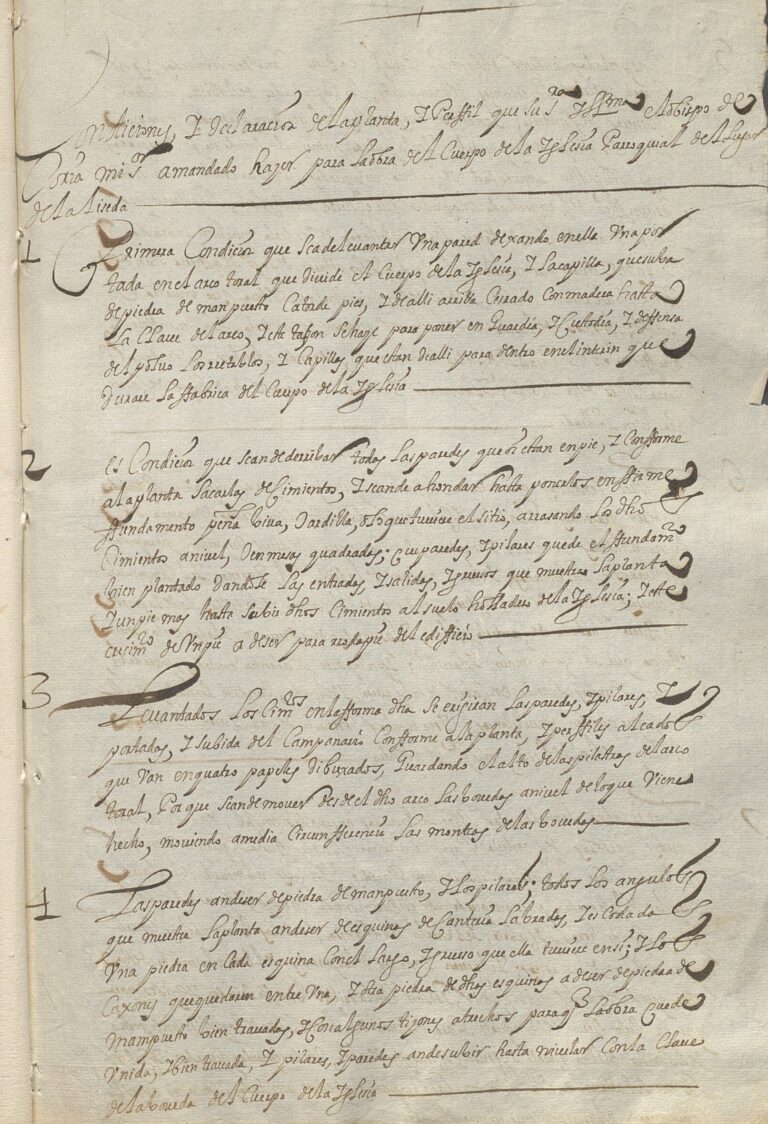 Condiciones, I declaracion de la planta, I Perffil que su s.ra Illma el obispo de
Coria mi s.r a mandado hazer para la obra del Cuerpo de la Iglesia Parroquial del lugar
de la liseda
1 Primera Condicion que se a de levantar Una pared dexando en ella Una por
tada en el arco toral que divide el Cuerpo de la Iglesia, I la capilla, que suba
de piedra de manpuesto Catorde pies, I de alli arriba Cerrado Con madera hasta
La Clave del arco, I este se haze para poner en Guardia, I Custodia, I deffensa
del polvo Los retablos, I Capillas que estan de alli para dentro en el interin que
durare La ffabrica del Cuerpo de la Iglesia
2 es Condicion que se an de derribar todas las paredes que oi estan en pie, I Confforme
a la planta Sacarlos de Cimientos, I se an de ahondar hasta ponerlos en ffirme
ffundamento peña biva, o ardilla, o lo que tuviere el sitio, arrasando Los dhos
Cimientos a nivel, o en mesas quadradas; que paredes, I pilares quede el ffundam.to
bien plantado dandole Las entradas, I salidas, I gruesos que muestra la planta
I un pie mas hasta subir dhos Cimientos al suelo holladero de la Iglesia; I este
de Un pie a de ser para rodapie del edifficio
3 Levantados Los Cim.tos en la fforma dha Se erigiran Las paredes, I pilares, I
portadas, I subida del Campanario Confforme a la planta, I perffiles
que van en quatro papeles dibuxados, Guardando el alto de las pilastras del arco
toral, Porque se an de mover desde el dho arco Las bovedas a nivel de lo que Viene
hecho, moviendo a media Circunfferencia Las monteas de las bovedas
4 Las paredes an de ser de piedra de manpuesto, I Los pilares; todos Los angulos
que muestra La planta an de ser de esquinas de Canteria Labradas, I es Cada
Una piedra en Cada esquina Con el Largo, I grueso que ella tuviere en si; I Lo
Caxones que quedaren entre Una, I otra piedra de dhas esquinas a de ser de piedra de
Mampuesto bien travadas, I Con algunos tizones a trechos para q La obra quede
Unida, I bien travada, I pilares, I paredes an de subir hasta nivelar Con la Clave
de la boveda del Cuerpo de la Iglesia